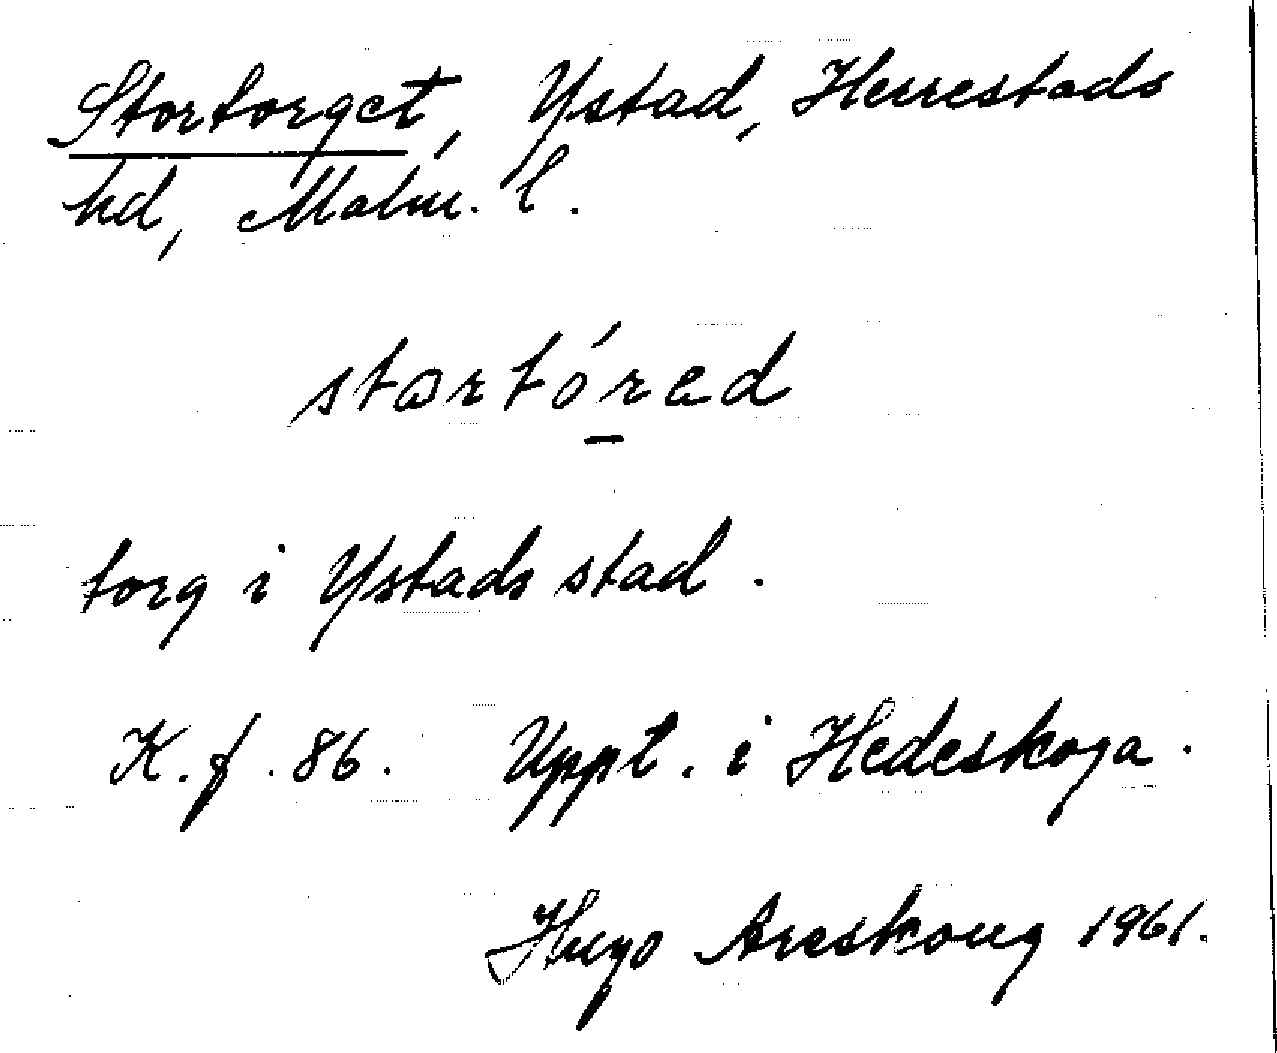 Stortorget, Ystad, Herrestads
hd, Malm. l.
stortóred
torg i Ystads stad.
K.f. 86. Uppt. i Hedeskoga.
Hugo Areskoug 1961.